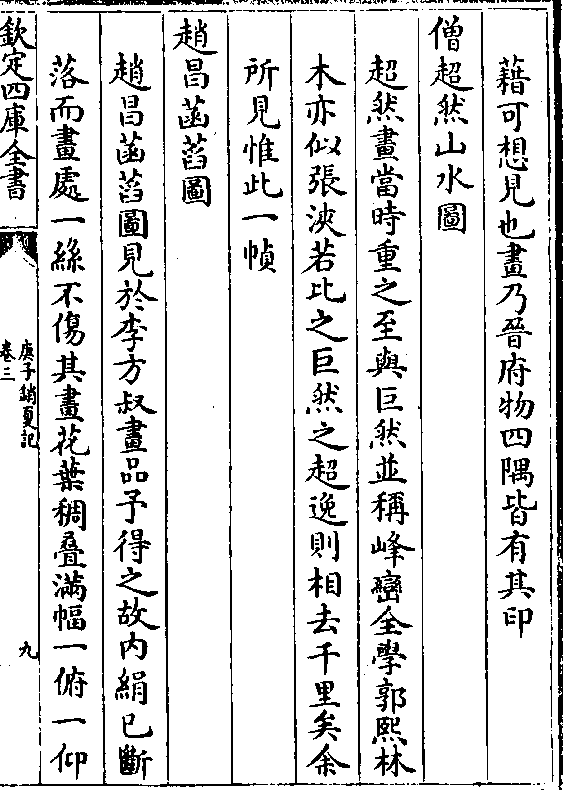 藉可想見也畫乃晉府物四隅皆有其印
僧超然山水圖
超然畫當時重之至與巨然並稱峰巒全學郭熙林
木亦似張浹若比之巨然之超逸則相去千里矣余
所見惟此一幀
趙昌菡萏圖
趙昌菡萏圖見於李方叔畫品予得之故内絹已斷
落而畫處一絲不傷其畫花葉稠疊滿幅一俯一仰
欽定四庫全書
庚子銷夏記
卷三
九